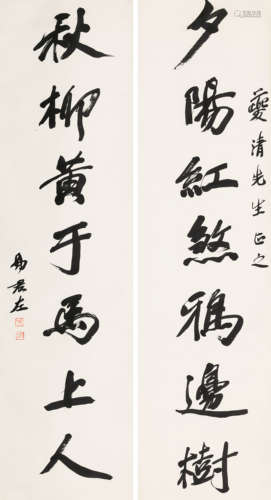 夔清先生正之
夕陽紅煞鴉邊樹
秋柳黃于馬上人
易君左